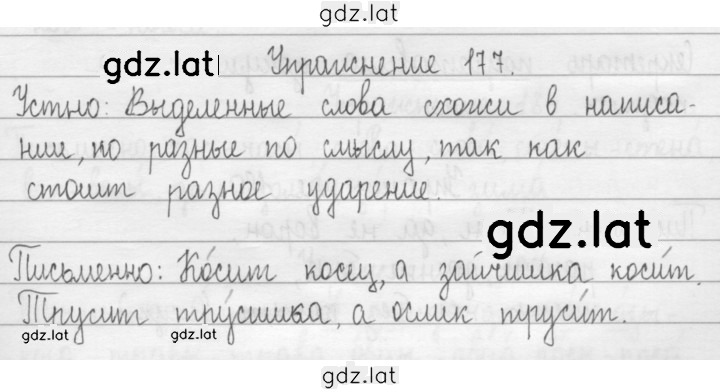 gdz.lat
gdz.lat Упражнение 177.
Устно: Выделенные слова схожи в написа-
нии, но разные по смыслу, так как
стоит разное ударение.
gdz.lat
Письменно: Ко́сит косец, а зайчишка коси́т.
Трусит тру́сишка, а ослик труси́т.
gdz.lat gdz.lat
gdz.lat